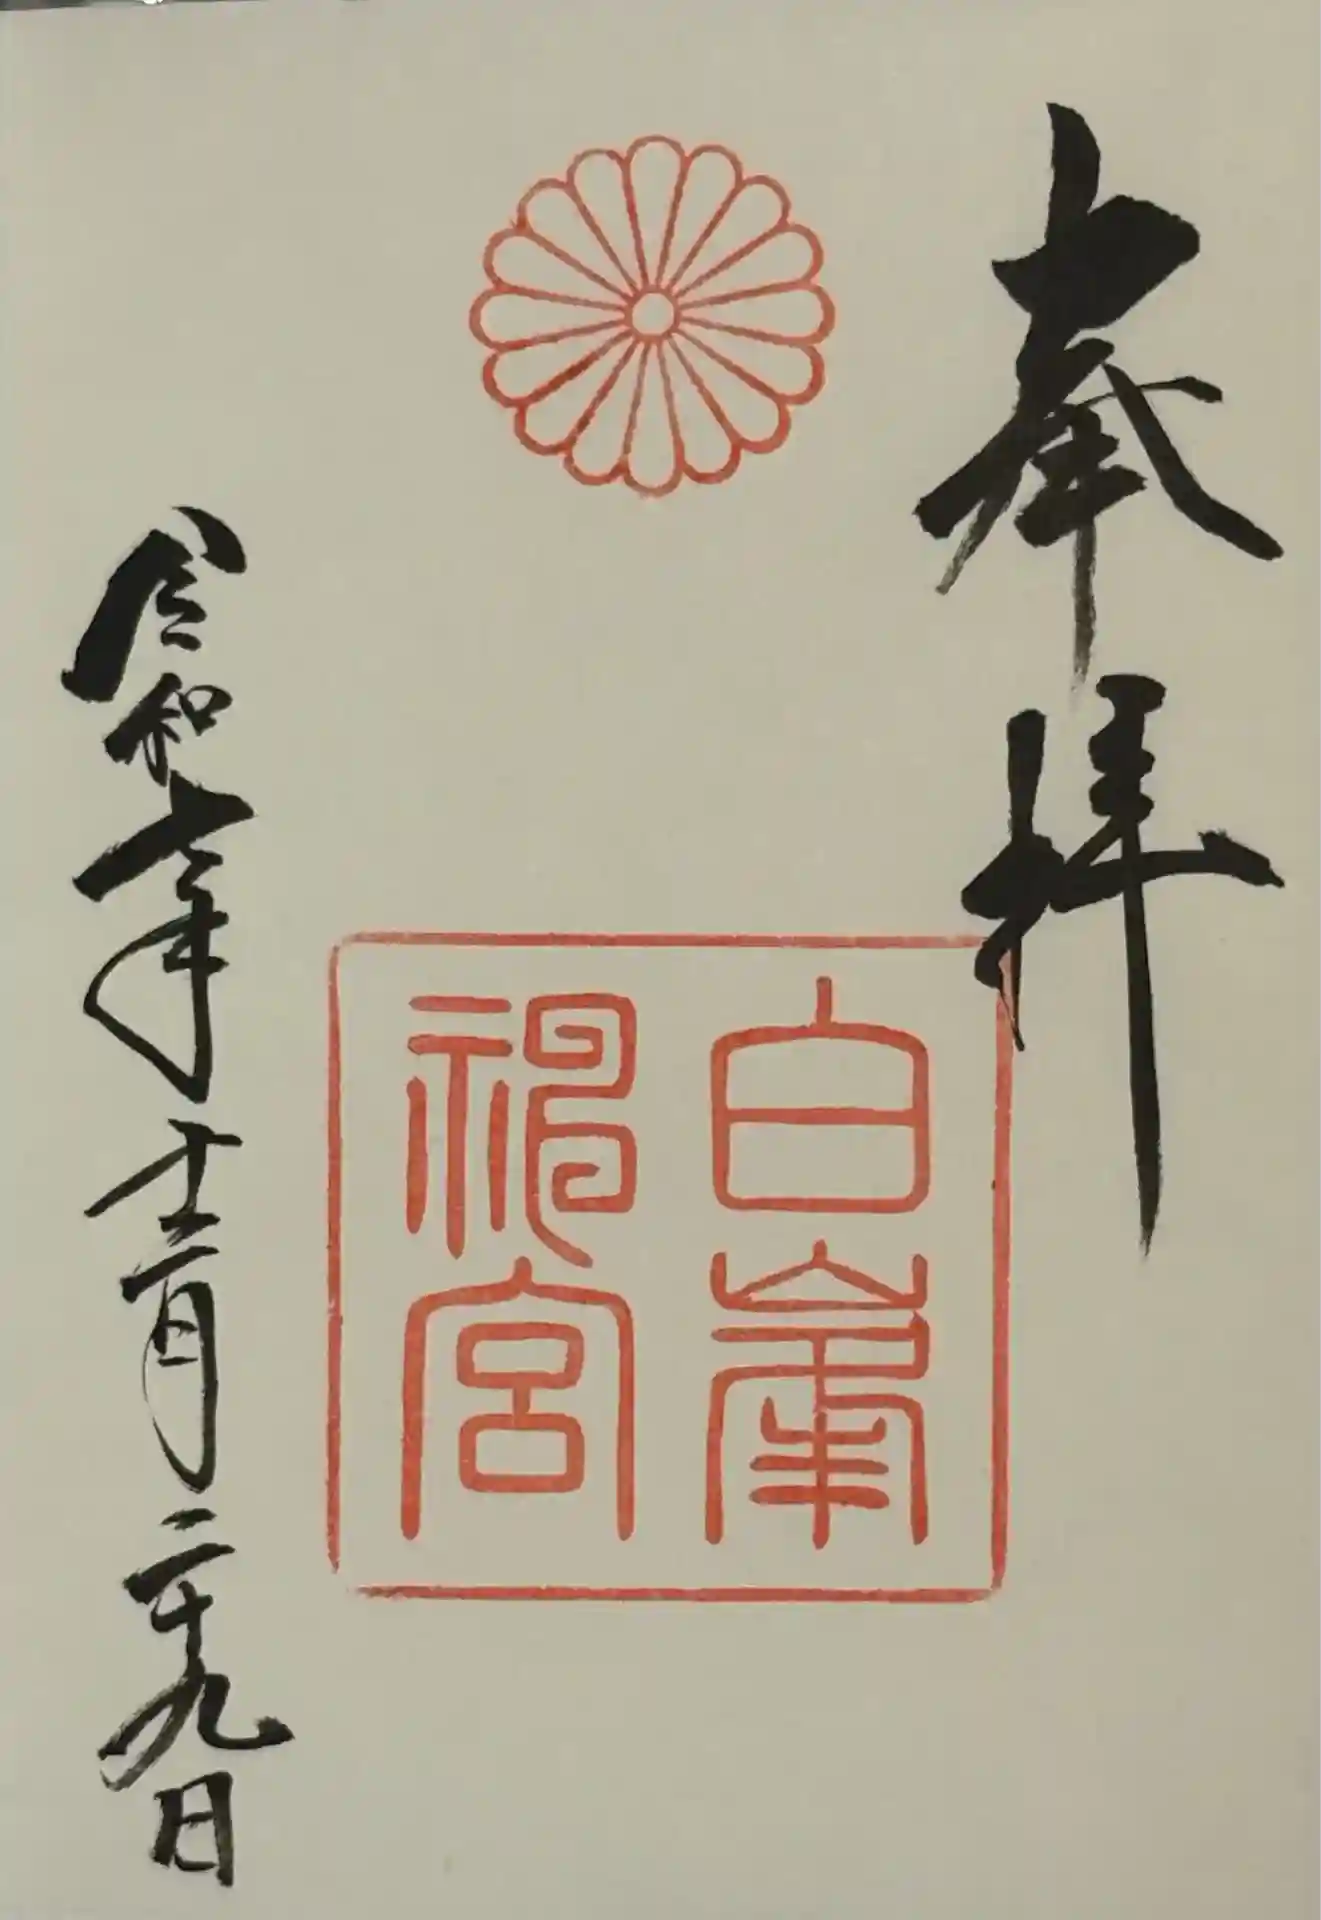 奉拝
白峯
神宮
令和七年十一月二十九日